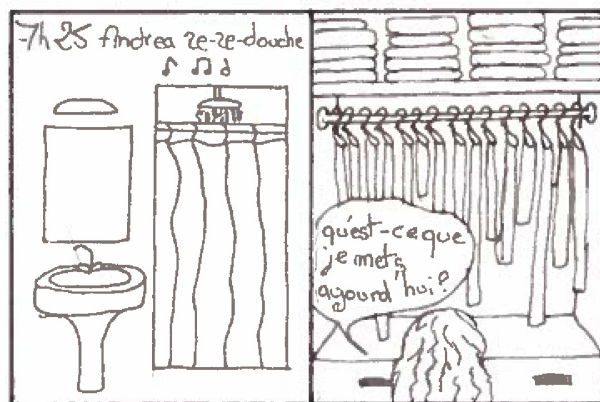 7h25 Andrea re-re-douche
qu'est-ce que
je mets
aujourd'hui?